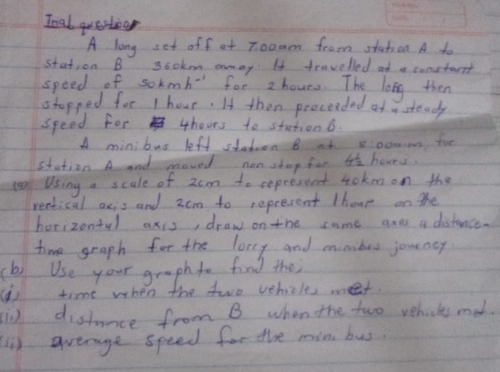 Trial question
A long set off at 7.00am from station A to
station B 360km away. It travelled at a constant
speed of 50kmh⁻¹ for 2 hours. The long then
stopped for 1 hour. It then proceeded at a steady
speed for 4 hours to station B.
A minibus left station B at 8.00am, for
station A and moved non stop for 4½ hours.
(a) Using a scale of 2cm to represent 40km on the
vertical axis and 2cm to represent 1 hour on the
horizontal axis, draw on the same axes a distance-
time graph for the lorry and minibus journey.
(b) Use your graph to find the;
(i) time when the two vehicles met.
(ii) distance from B when the two vehicles met.
(iii) average speed for the minibus.